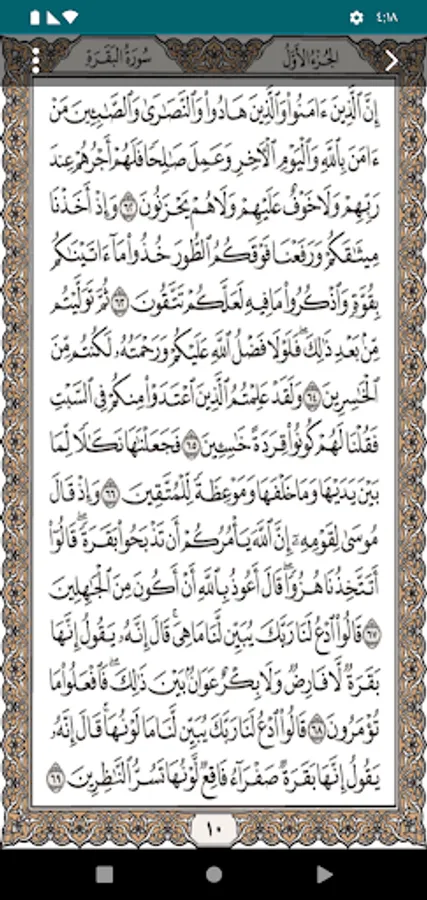 ٤:١٨
الجُزْءُ الأَوَّلُ
سُورَةُ البَقَرَةِ
إِنَّ ٱلَّذِينَ ءَامَنُوا۟ وَٱلَّذِينَ هَادُوا۟ وَٱلنَّصَٰرَىٰ وَٱلصَّٰبِـِٔينَ مَنْ
ءَامَنَ بِٱللَّهِ وَٱلْيَوْمِ ٱلْـَٔاخِرِ وَعَمِلَ صَٰلِحًا فَلَهُمْ أَجْرُهُمْ عِندَ
رَبِّهِمْ وَلَا خَوْفٌ عَلَيْهِمْ وَلَا هُمْ يَحْزَنُونَ ٦٢ وَإِذْ أَخَذْنَا
مِيثَٰقَكُمْ وَرَفَعْنَا فَوْقَكُمُ ٱلطُّورَ خُذُوا۟ مَآ ءَاتَيْنَٰكُم
بِقُوَّةٍ وَٱذْكُرُوا۟ مَا فِيهِ لَعَلَّكُمْ تَتَّقُونَ ٦٣ ثُمَّ تَوَلَّيْتُم
مِّنۢ بَعْدِ ذَٰلِكَ ۖ فَلَوْلَا فَضْلُ ٱللَّهِ عَلَيْكُمْ وَرَحْمَتُهُۥ لَكُنتُم مِّنَ
ٱلْخَٰسِرِينَ ٦٤ وَلَقَدْ عَلِمْتُمُ ٱلَّذِينَ ٱعْتَدَوْا۟ مِنكُمْ فِى ٱلسَّبْتِ
فَقُلْنَا لَهُمْ كُونُوا۟ قِرَدَةً خَٰسِـِٔينَ ٦٥ فَجَعَلْنَٰهَا نَكَٰلًا لِّمَا
بَيْنَ يَدَيْهَا وَمَا خَلْفَهَا وَمَوْعِظَةً لِّلْمُتَّقِينَ ٦٦ وَإِذْ قَالَ
مُوسَىٰ لِقَوْمِهِۦٓ إِنَّ ٱللَّهَ يَأْمُرُكُمْ أَن تَذْبَحُوا۟ بَقَرَةً ۖ قَالُوٓا۟
أَتَتَّخِذُنَا هُزُوًا ۖ قَالَ أَعُوذُ بِٱللَّهِ أَنْ أَكُونَ مِنَ ٱلْجَٰهِلِينَ
٦٧ قَالُوا۟ ٱدْعُ لَنَا رَبَّكَ يُبَيِّن لَّنَا مَا هِىَ ۚ قَالَ إِنَّهُۥ يَقُولُ إِنَّهَا
بَقَرَةٌ لَّا فَارِضٌ وَلَا بِكْرٌ عَوَانٌۢ بَيْنَ ذَٰلِكَ ۖ فَٱفْعَلُوا۟ مَا
تُؤْمَرُونَ ٦٨ قَالُوا۟ ٱدْعُ لَنَا رَبَّكَ يُبَيِّن لَّنَا مَا لَوْنُهَا ۚ قَالَ إِنَّهُۥ
يَقُولُ إِنَّهَا بَقَرَةٌ صَفْرَآءُ فَاقِعٌ لَّوْنُهَا تَسُرُّ ٱلنَّٰظِرِينَ ٦٩
١٠